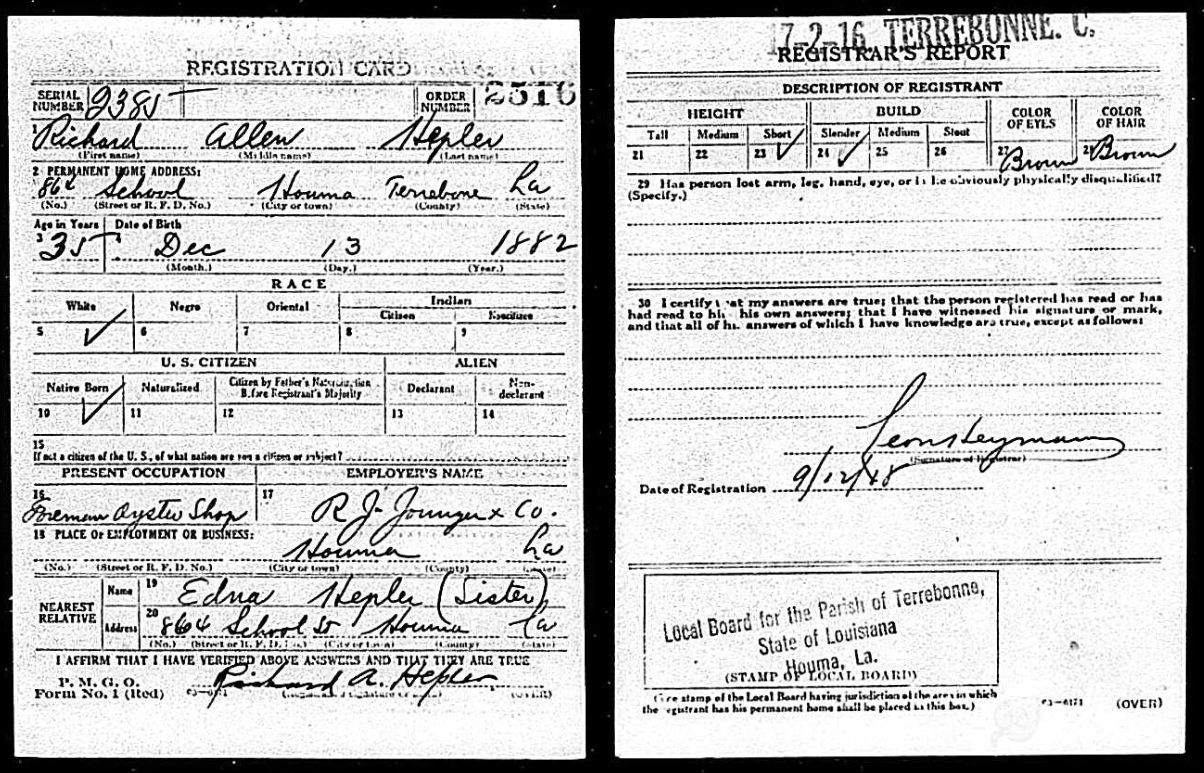 REGISTRATION CARD
SERIAL NUMBER 2385
ORDER NUMBER 2516
1 Richard Allen Hepler
(First name) (Middle name) (Last name)
2 PERMANENT HOME ADDRESS:
864 School Houma Terrebone La
(No.) (Street or R. F. D. No.) (City or town) (County) (State)
Age in Years Date of Birth
3 35 4 Dec 13 1882
(Month.) (Day.) (Year.)
RACE
White Negro Oriental Indian
Citizen Noncitizen
5 6 7 8 9
U. S. CITIZEN ALIEN
Native Born Naturalized Citizen by Father's Naturalization Before Registrant's Majority Declarant Non-declarant
10 11 12 13 14
15
If not a citizen of the U. S., of what nation are you a citizen or subject?
PRESENT OCCUPATION EMPLOYER'S NAME
16 Foreman Oyster Shop 17 R J- Younger & Co.
18 PLACE OF EMPLOYMENT OR BUSINESS:
Houma La
(No.) (Street or R. F. D. No.) (City or town) (County) (State)
NEAREST RELATIVE
Name 19 Edna Hepler (Sister)
Address 20 864 School St Houma La
(No.) (Street or R. F. D. No.) (City or town) (County) (State)
I AFFIRM THAT I HAVE VERIFIED ABOVE ANSWERS AND THAT THEY ARE TRUE
P. M. G. O.
Form No. 1 (Red) Richard A. Hepler
(Registrant's signature or mark) (OVER)
17-2-16 TERREBONNE. C.
REGISTRAR'S REPORT
DESCRIPTION OF REGISTRANT
HEIGHT BUILD COLOR OF EYES COLOR OF HAIR
Tall Medium Short Slender Medium Stout
21 22 23 24 25 26 27 Brown 28 Brown
29 Has person lost arm, leg, hand, eye, or is he obviously physically disqualified?
(Specify.)
30 I certify that my answers are true; that the person registered has read or has
had read to him his own answers; that I have witnessed his signature or mark,
and that all of his answers of which I have knowledge are true, except as follows:
Leon Heymann
(Signature of Registrar)
Date of Registration 9/12/18
Local Board for the Parish of Terrebonne,
State of Louisiana
Houma, La.
(STAMP OF LOCAL BOARD)
(The stamp of the Local Board having jurisdiction of the area in which
the registrant has his permanent home shall be placed in this box.)
03-6171 (OVER)